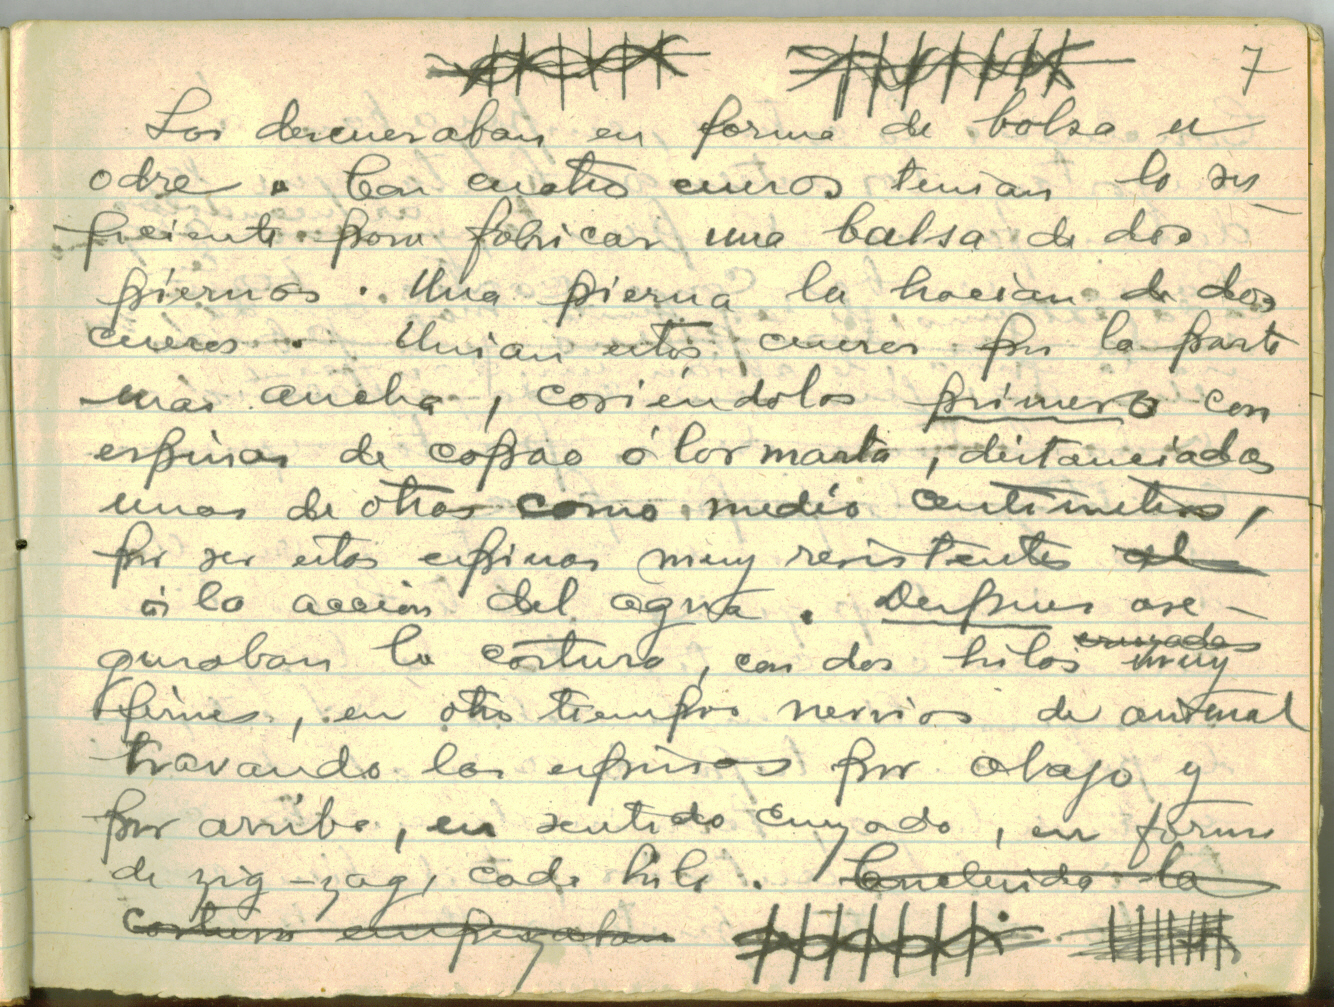 7
Los descueraban en forma de bolsa u
odre. Con cuatro cueros tenian lo su-
ficiente para fabricar una balsa de dos
piernas. Una pierna la hacían de dos
cueros. Unian estos cueros por la parte
más ancha, cosiéndolos primero con
espinas de copao ó los mata, distanciadas
unas de otras como medio centimetros,
por ser estas espinas muy resistentes al
á la acción del agua. Despues ase-
guraban la costura, con dos hilos cruzados muy
firmes, en otro tiempo nervios de animal
travando las espinas por abajo y
por arriba, en sentido cruzado, en forma
de zig-zag, cada hilo. Concluida la
costura empezaban